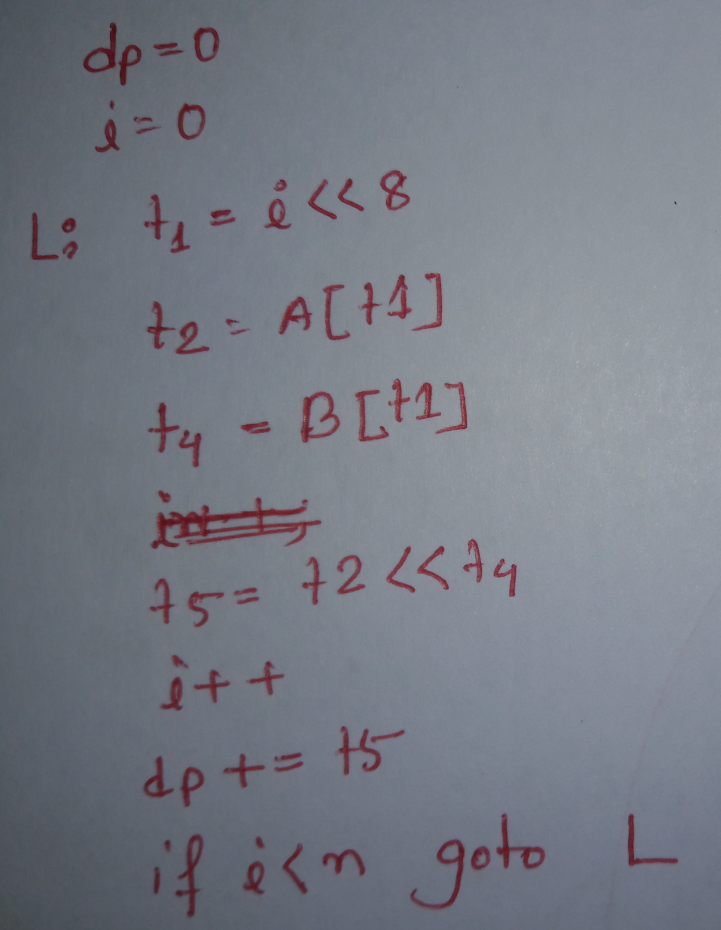 dp = 0
i = 0
L: t1 = i << 8
t2 = A[t1]
t4 = B[t1]
t5 = t2 << t4
i++
dp += t5
if i < n goto L